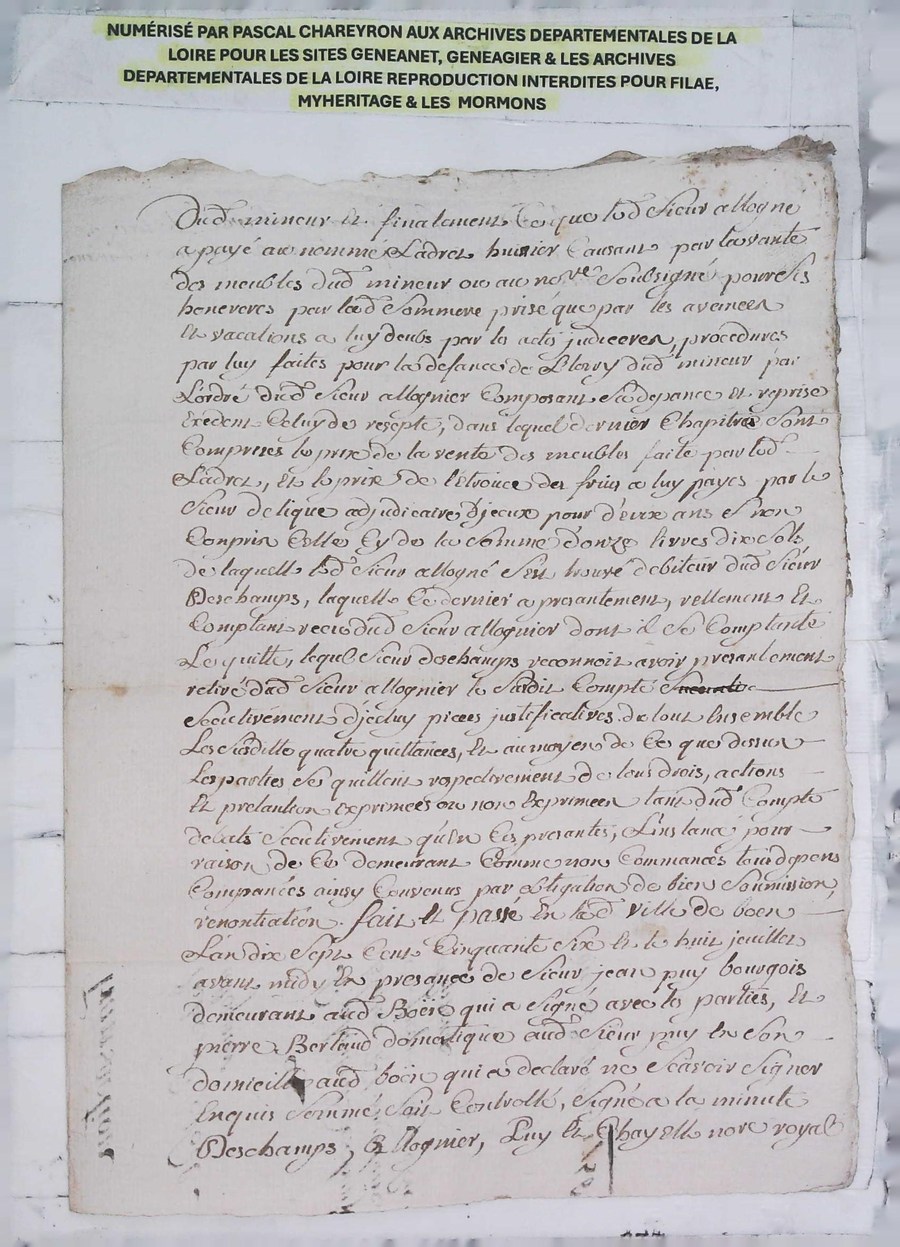 NUMÉRISÉ PAR PASCAL CHAREYRON AUX ARCHIVES DEPARTEMENTALES DE LA
LOIRE POUR LES SITES GENEANET, GENEAGIER & LES ARCHIVES
DEPARTEMENTALES DE LA LOIRE REPRODUCTION INTERDITES POUR FILAE,
MYHERITAGE & LES MORMONS
Dud mineur Et finalement Ce que led Sieur allogné
a payé au nommé Ladret huisier Causant par la vante
des meubles dud mineur ou au no.re Soubsigné pour Ses
honereres par lad Somme prisé que par les avences
Et vacations a luy deubs par les actes judiceres, procedures
par luy faites pour la defance de dud mineur par
L'ordre dud Sieur allognier Composant Sa depance Et reprise
Exedent Celuy de resepte, dans lequel dernier Chapitre Sont
Comprises le prix de la vente des meubles faite par led
Ladret, Et le prix de l'Etrouce des fruis a luy payés par le
Sieur delique adjudicaire D'jceux pour d'eux ans Et non
Conpris Celle Cy de la Somme d'onze livres dix Sols
de laquelle led Sieur allogné S'est trouvé debiteur dud Sieur
Deschamps, laquelle Ce dernier a presantement, rellement Et
Comptant receu dud Sieur allognier dont il Se Comptante
Le quitte, lequel Sieur deschamps reconnoit avoir presantement
retiré dud Sieur allognier le Susdit Compte
Secectivement D'jceluy pieces justificatives de tout Ensemble
Les Susditte quatre quittances, Et au moyen de Ce que dessus
Les parties Se quittent respectivement de tous drois, actions
Et pretantion exprimées ou non Exprimées tant dud Compte
debats Secectivement qu'En Ces presantes, L'instance pour
raison de Ce demeurant Comme non Commancés tous depens
Compancés ainsy Convenus par obligation de bien Soumission,
renontiation. fait Et passé En lad ville de boën
L'an dix Sept Cent Cinquante Six Et le huit jeuillet
avant midy En presance de Sieur jean puy bourgois
demeurant aud Boën qui a Signé avec les parties, Et
pierre Bertaud domestique aud Sieur puy En Son
domicille aud boën qui a declaré ne Scavoir Signer
Enquis Sommé, Soit Controllé, Signé a la minute
Deschamps, allognier, Puy Et Chayette nore royal